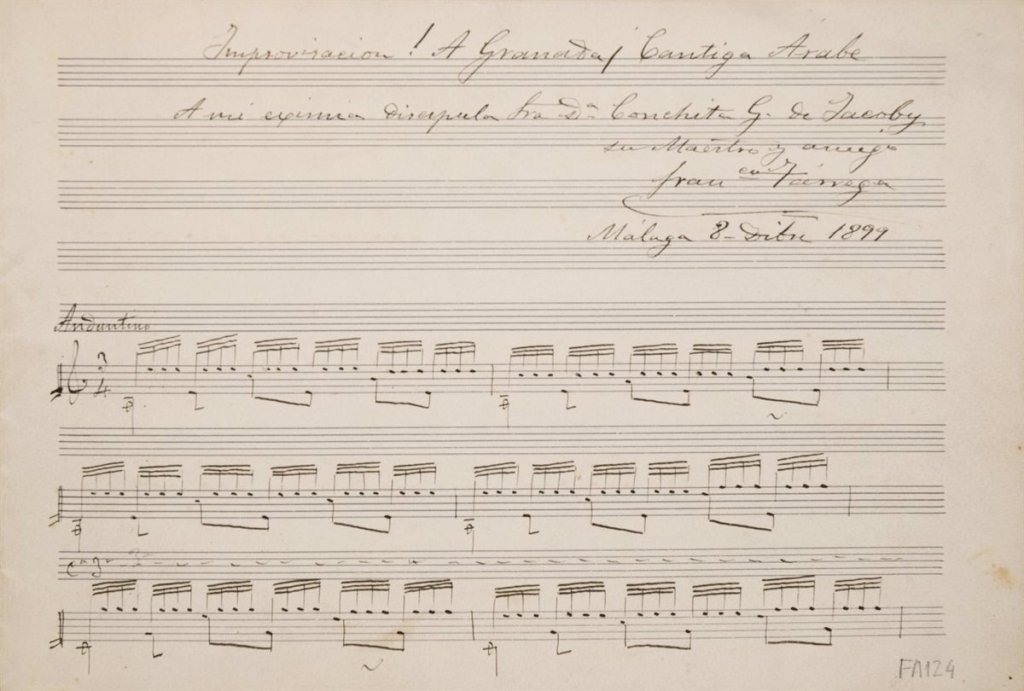 Improvisacion ! A Granada ¡ Cantiga Arabe
A mi eximia discipula Sra Dª Conchita G. de Jacoby
su Maestro y amigo
Franco Tárrega
Málaga 8 - Dibre 1899
Andantino
3
4
Cª 3ª
FA124